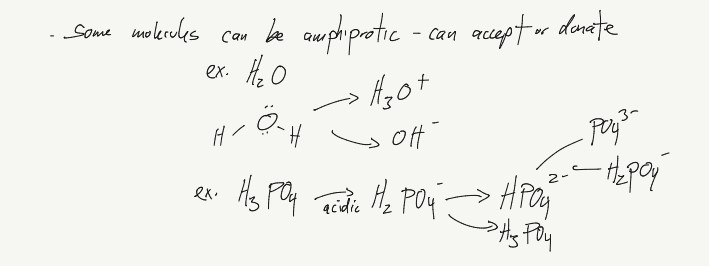 - Some molecules can be amphiprotic - can accept or donate
ex. H₂O
H₃O⁺
H Ö H
OH⁻
PO₄³⁻
H₂PO₄⁻
ex. H₃PO₄ acidic H₂PO₄⁻ HPO₄²⁻
H₃PO₄